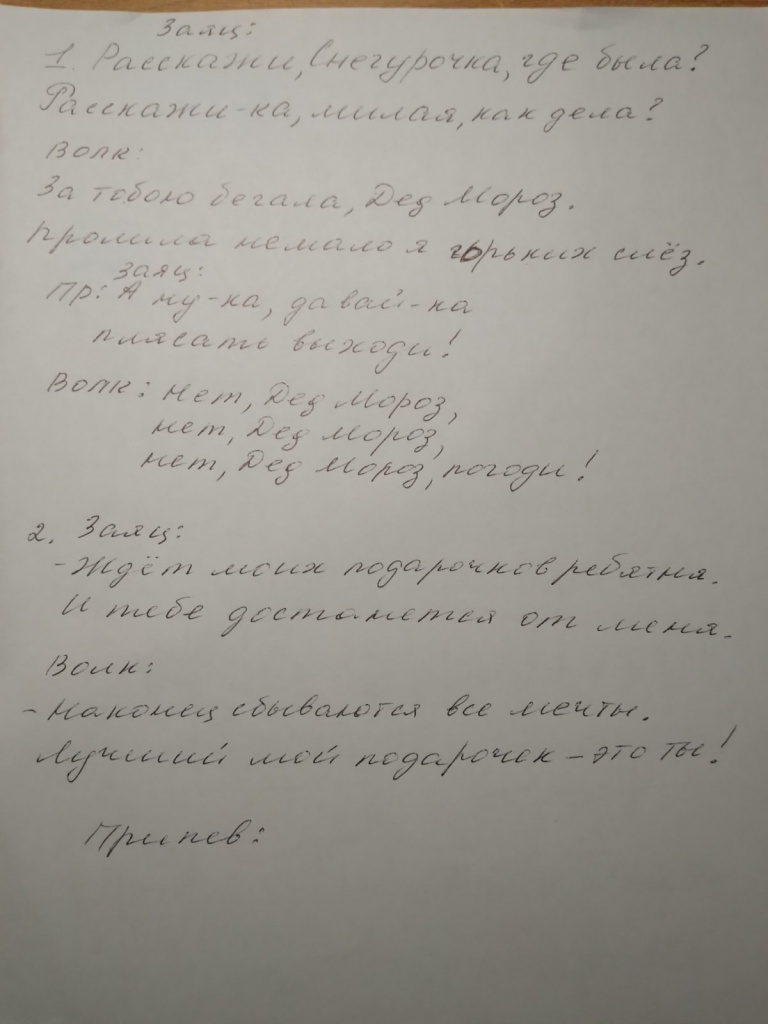 Заяц:
1. Расскажи, Снегурочка, где была?
Расскажи-ка, милая, как дела?
Волк:
За тобою бегала, Дед Мороз.
Пролила немало я горьких слёз.
Заяц:
Пр: А ну-ка, давай-ка
плясать выходи!
Волк: Нет, Дед Мороз,
нет, Дед Мороз,
нет, Дед Мороз, погоди!
2. Заяц:
- Ждёт моих подарочков ребятня.
И тебе достанется от меня.
Волк:
- Наконец сбываются все мечты.
Лучший мой подарочек - это ты!
Припев: